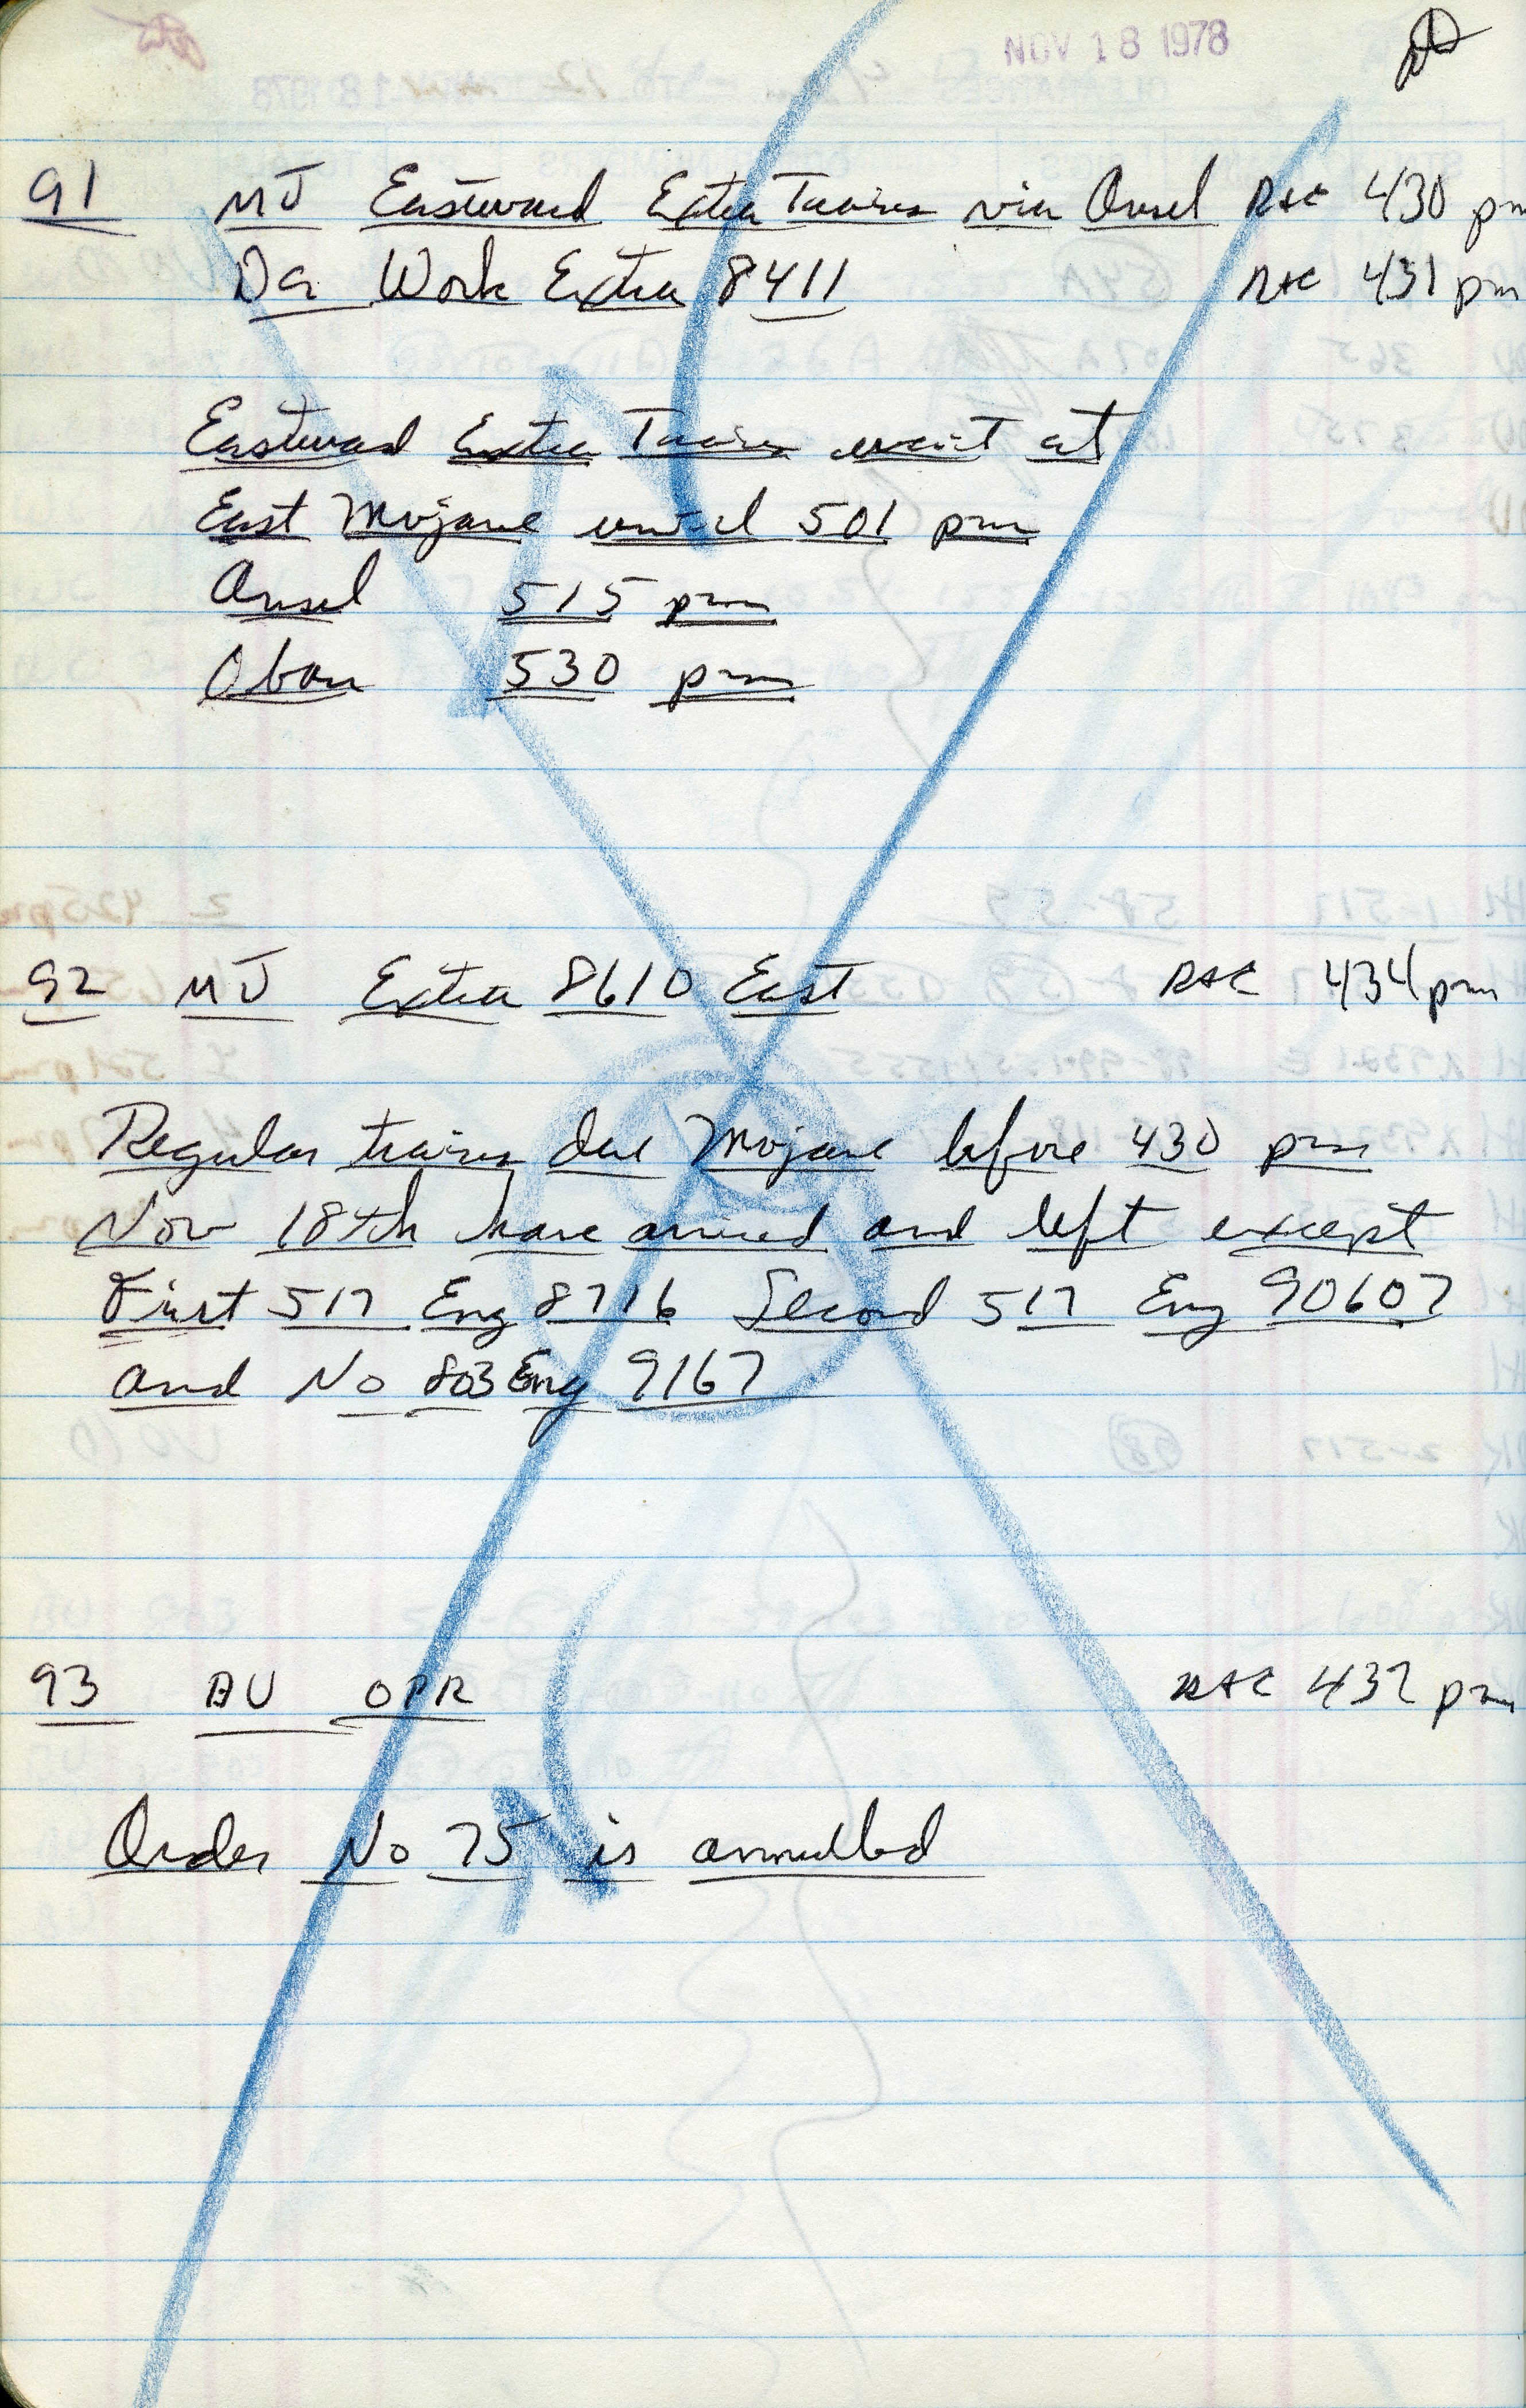 NOV 18 1978
91 MJ Eastward Extra Trains via Ansel RAC 430 pm
Da Work Extra 8411 RAC 431 pm
Eastward Extra Trains wait at
East Mojave until 501 pm
Ansel 515 pm
Oban 530 pm
92 MJ Extra 8610 East RAC 434 pm
Regular trains due Mojave before 430 pm
Nov 18th have arrived and left except
First 517 Eng 8716 Second 517 Eng 90607
and No 803 Eng 9167
93 BU OPR RAC 437 pm
Order No 75 is annulled